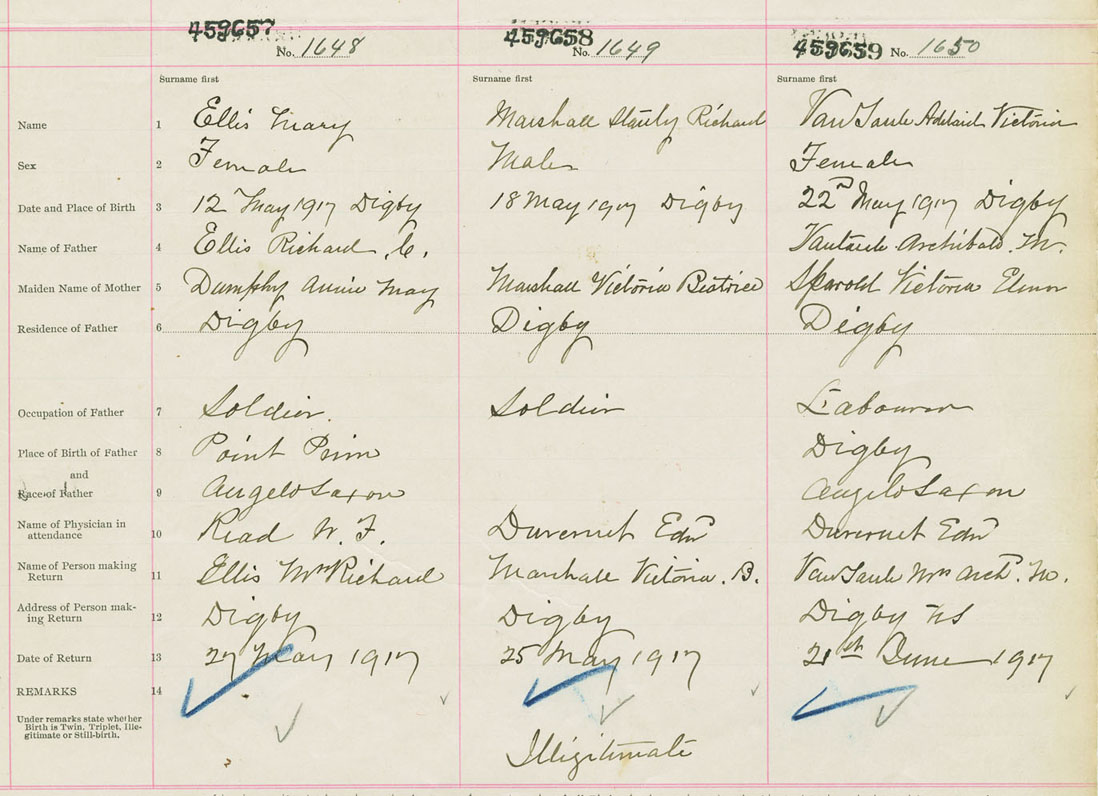 459657 459658 459659
No. 1648 No. 1649 No. 1650
Surname first Surname first Surname first
Name 1 Ellis Mary Marshall Stanly Richard VanTaule Adelaid Victoria
Sex 2 Female Male Female
Date and Place of Birth 3 12 May 1917 Digby 18 May 1917 Digby 22nd May 1917 Digby
Name of Father 4 Ellis Richard C. Archibald M.
Maiden Name of Mother 5 Dumphy Annie May Marshall Victoria Beatrice Victoria
Residence of Father 6 Digby Digby Digby
Occupation of Father 7 Soldier. Soldier Labourer
Place of Birth of Father 8 Point Prim Digby
and
Race of Father 9 Angelo Saxon Angelo Saxon
Name of Physician in
attendance 10 Read W. F. Duvernet Edw Duvernet Edw
Name of Person making
Return 11 Ellis Mrs Richard Marshall Victoria. B. VanTaule Mrs Arch. M.
Address of Person mak-
ing Return 12 Digby Digby Digby NS
Date of Return 13 27 May 1917 25 May 1917 21st June 1917
REMARKS 14
Under remarks state whether
Birth is Twin, Triplet, Ille-
gitimate or Still-birth.
Illigitimate